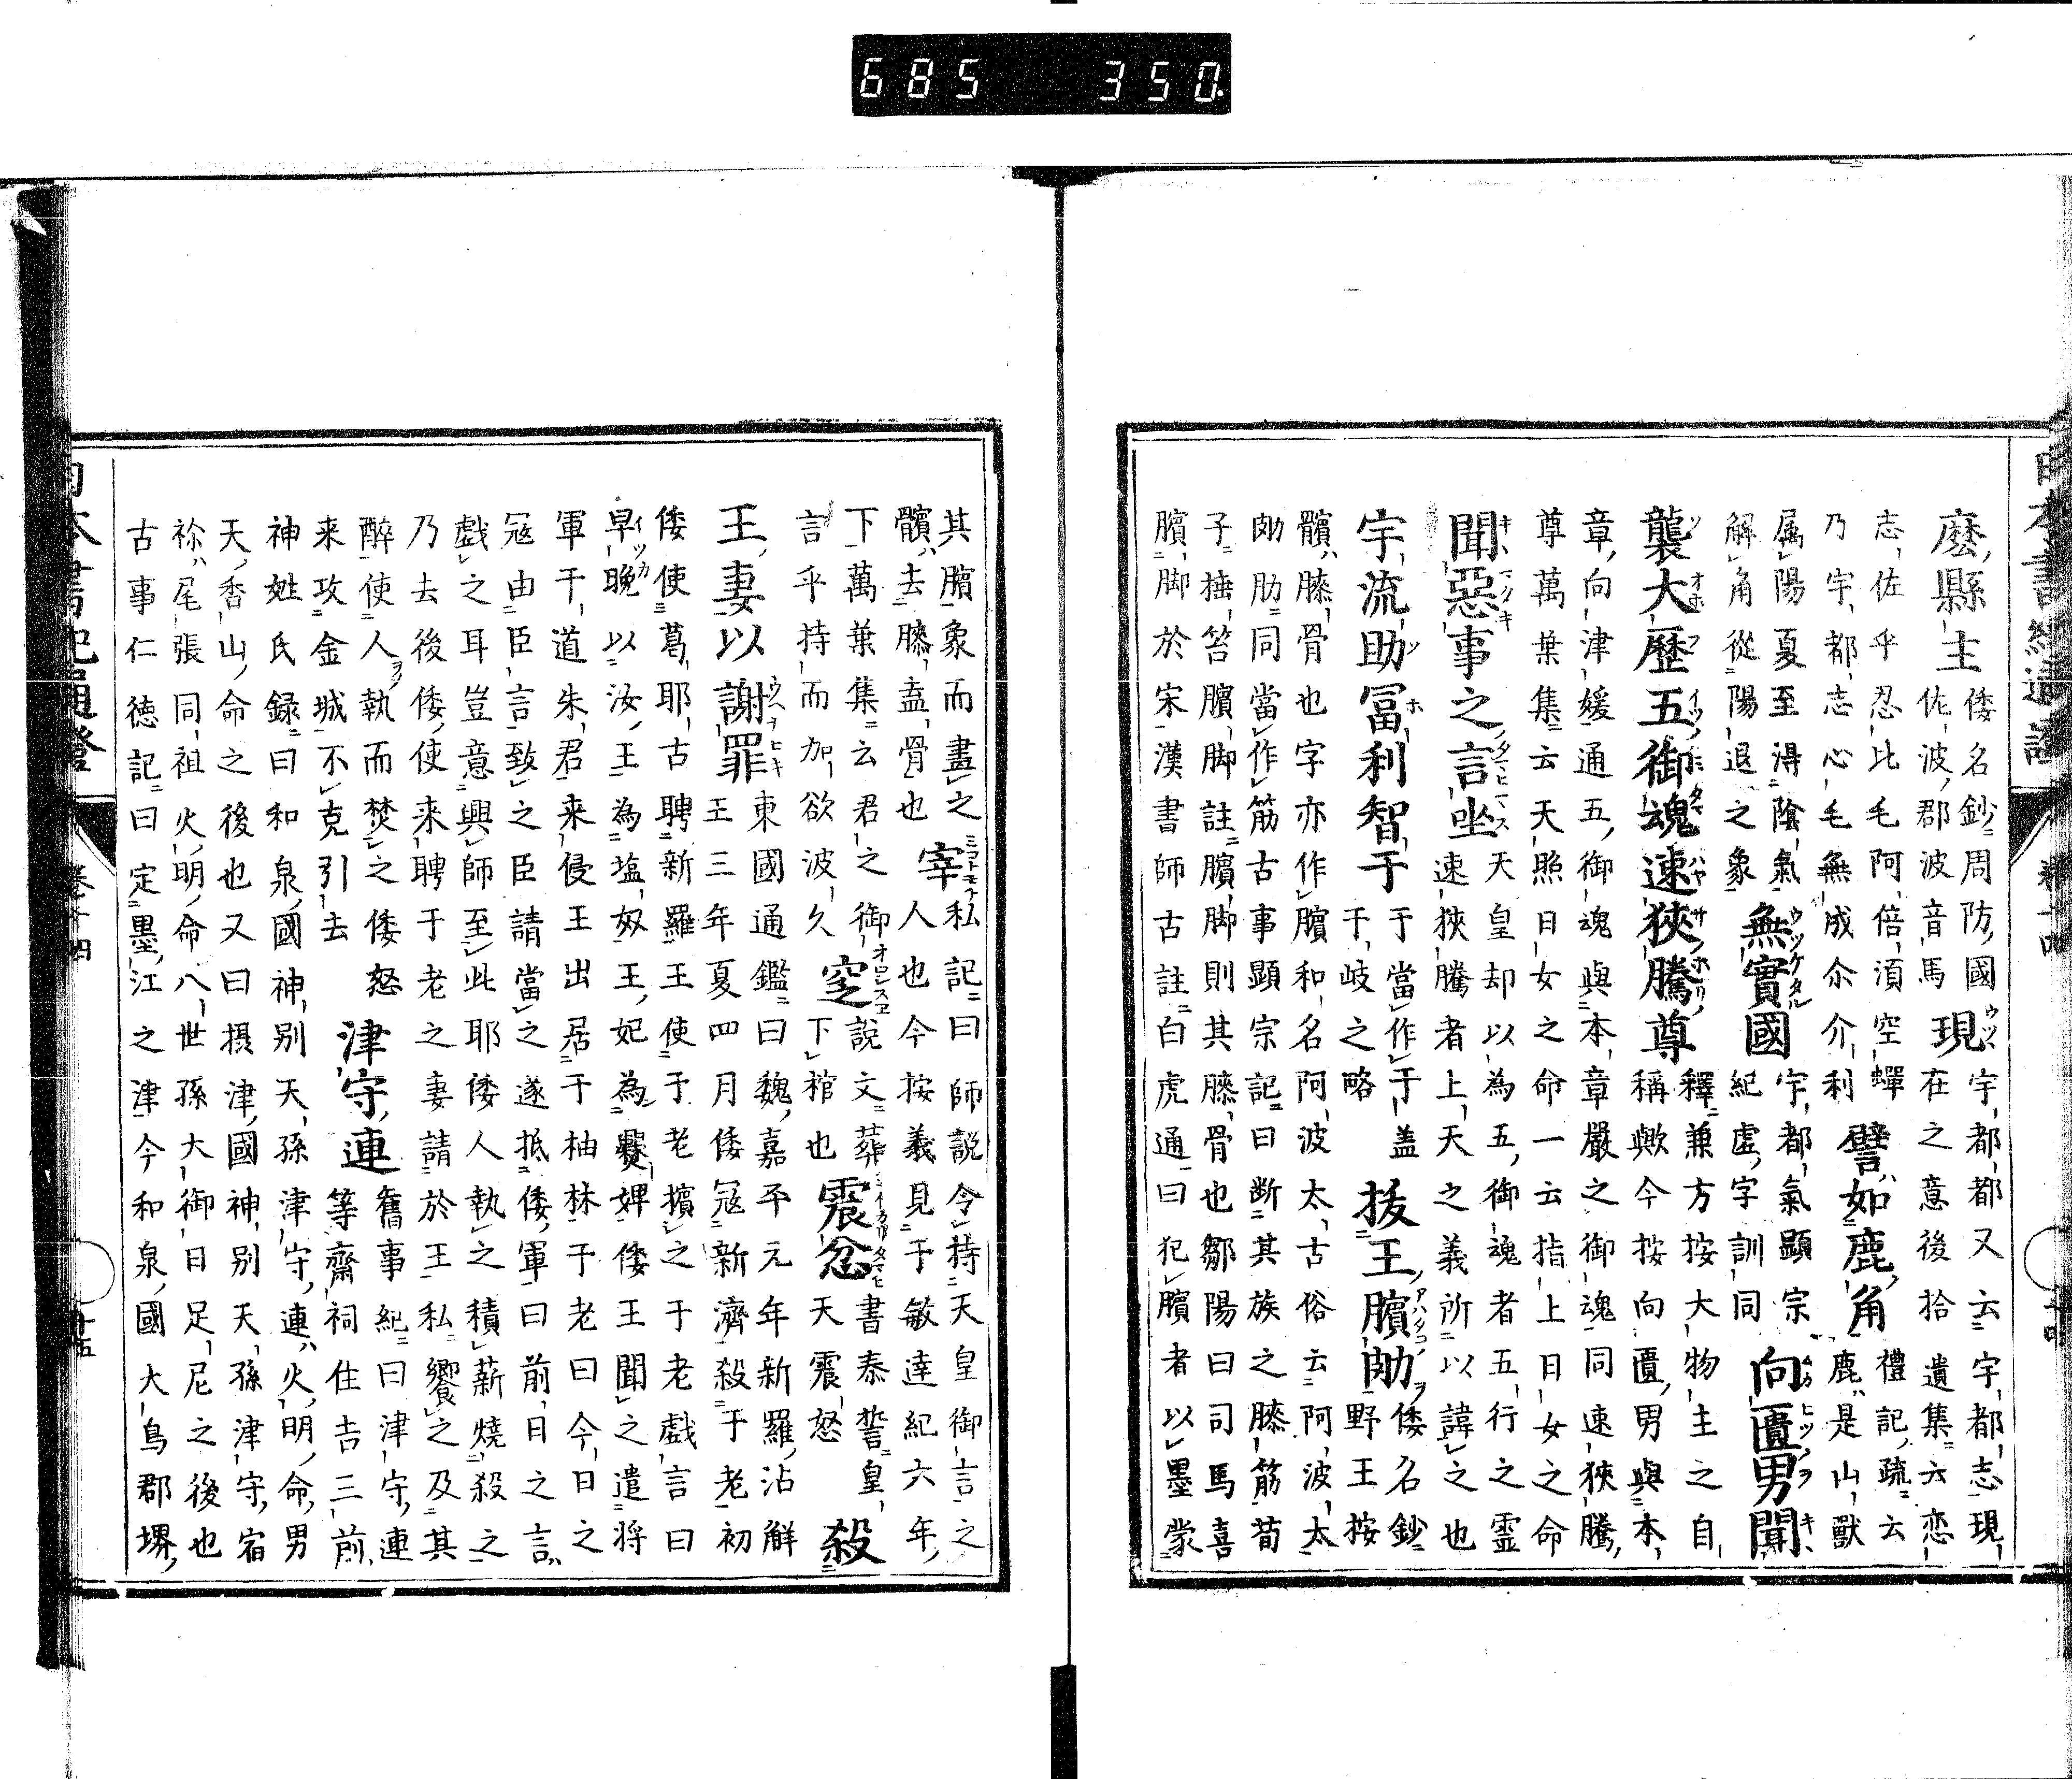 685 350
麽縣主倭名鈔周防國
佐波郡波音馬
現宇都都又云宇都志現
在之意後拾遺集云恋
志佐乎忍比毛阿倍湏空蟬
乃宇都志心毛無成尒介利
譬如鹿角禮記疏云
鹿是山獸
属陽夏至淂陰氣
解角從陽退之象
無實國宇都氣顯宗
紀虚字訓同
向匱男聞
襲大歷五御魂速狹騰尊釋兼方按大物主之自
稱歟今按向匱男與本
章向津媛通五御魂與本章嚴之御魂同速狹騰
尊萬葉集云天照日女之命一云指上日女之命
聞惡事之言坐天皇却以為五御魂者五行之霊
速狹騰者上天之義所以諱之也
宇流助冨利智于于當作于盖
干岐之略
援王臏莇倭名鈔
野王按
髕膝骨也字亦作臏和名阿波太古俗云阿波太
莇肋同當作筋古事顕宗記曰断其族之膝筋荀
子捶笞臏脚註臏脚則其膝骨也鄒陽曰司馬喜
臏脚於宋漢書師古註白虎通曰犯臏者以墨蒙
其臏象而畫之
髕去膝盍骨也
宰私記曰師説今持天皇御言之
人也今按義見于敏達紀六年
下萬葉集云君之御
言乎持而加欲波久
窆說文葬
下棺也
震忿書泰誓皇
天震怒
殺
王妻以謝罪東國通鑑曰魏嘉平元年新羅沾解
王三年夏四月倭冦新濟殺于老初
倭使葛耶古聘新羅王使于老擯之于老戯言曰
早晩以汝王為塩奴王妃為爨婢倭王聞之遣将
軍干道朱君来侵王出居于柚林于老曰今日之
冦由臣言致之臣請當之遂抵倭軍曰前日之言
戯之耳豈意興師至此耶倭人執之積薪燒殺之
乃去後倭使来聘于老之妻請於王私饗之及其
醉使人執而焚之倭怒
来攻金城不克引去
津守連舊事紀曰津守連
等齋祠住吉三前
神姓氏録曰和泉國神别天孫津守連火明命男
天香山命之後也又曰摂津國神别天孫津守宿
祢尾張同祖火明命八世孫大御日足尼之後也
古事仁徳記曰定墨江之津今和泉國大鳥郡堺